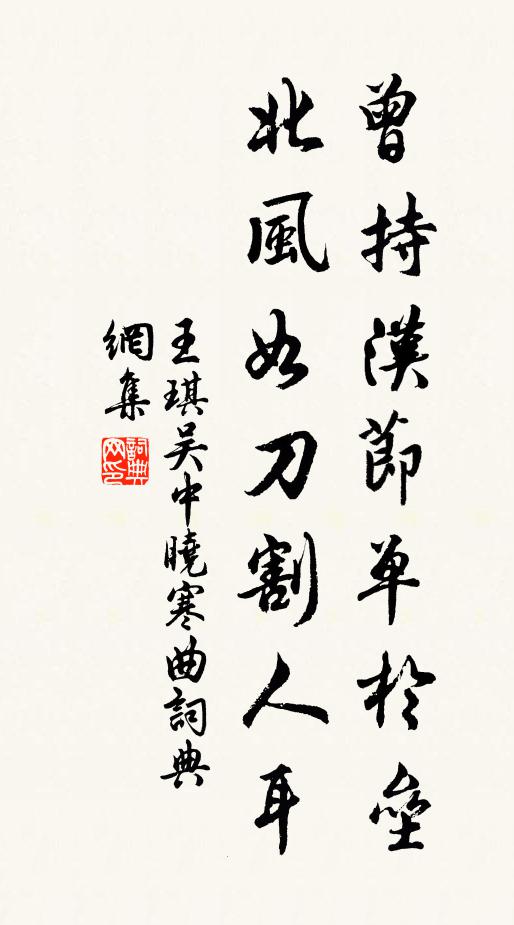 曾持漢節單於壘
北風如刀割人耳
王琪吴中曉寒曲詞典
網集
詞典
网印